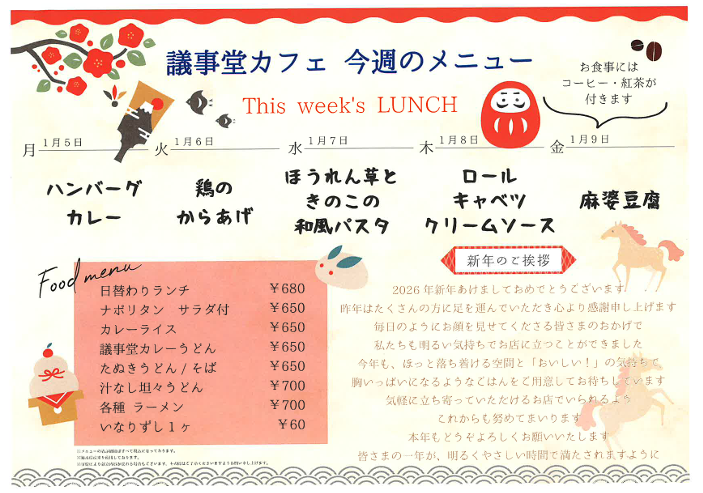 議事堂カフェ 今週のメニュー
お食事には
コーヒー・紅茶が
付きます
This week's LUNCH
月 1月5日
火 1月6日
水 1月7日
木 1月8日
金 1月9日
ハンバーグ
カレー
鶏の
からあげ
ほうれん草と
きのこの
和風パスタ
ロール
キャベツ
クリームソース
麻婆豆腐
Food menu
日替わりランチ ￥680
ナポリタン サラダ付 ￥650
カレーライス ￥650
議事堂カレーうどん ￥650
たぬきうどん/そば ￥650
汁なし坦々うどん ￥700
各種 ラーメン ￥700
いなりずし1ヶ ￥60
新年のご挨拶
2026年新年あけましておめでとうございます
昨年はたくさんの方に足を運んでいただき心より感謝申し上げます
毎日のようにお顔を見せてくださる皆さまのおかげで
私たちも明るい気持ちでお店に立つことができました
今年も、ほっと落ち着ける空間と「おいしい！」の気持ちで
胸いっぱいになるようなごはんをご用意してお待ちしています
気軽に立ち寄っていただけるお店でいられるよう
これからも努めてまいります
本年もどうぞよろしくお願いいたします
皆さまの一年が、明るくやさしい時間で満たされますように